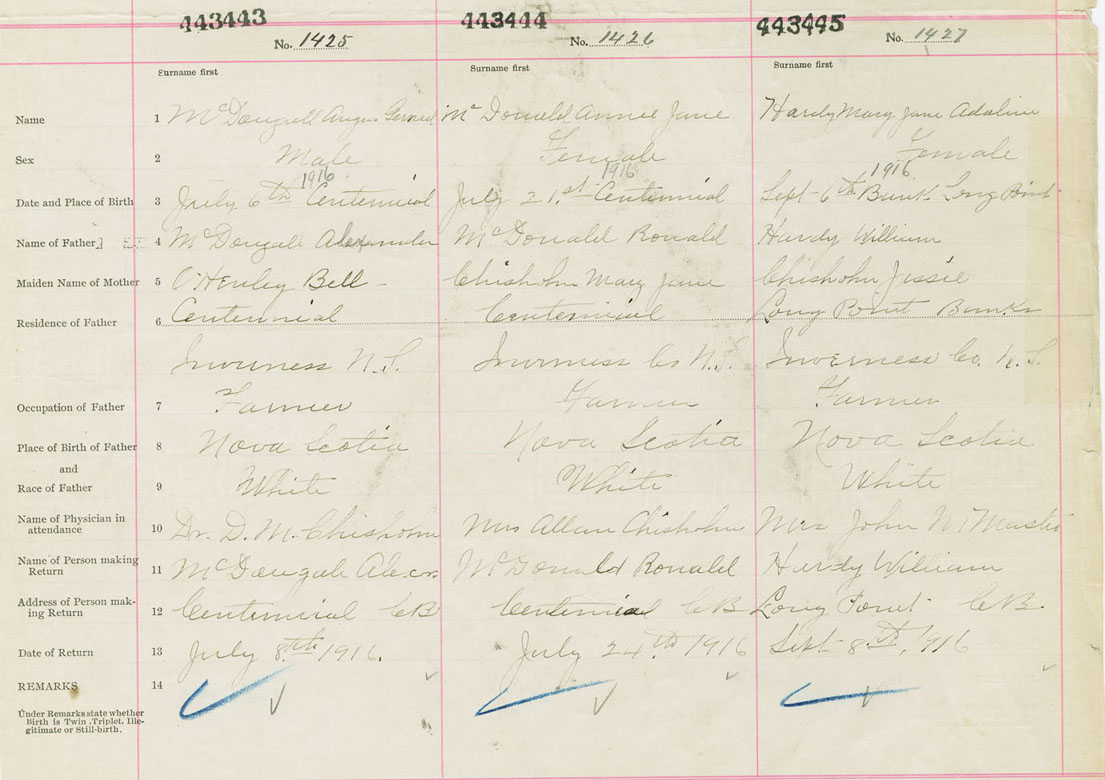 443443 443444 443445
No. 1425 No. 1426 No. 1427
Surname first Surname first Surname first
Name 1 McDougall Angus McDonald Annie Jane Hardy Mary Jane Adaline
Sex 2 Male Female Female
1916 1916 1916
Date and Place of Birth 3 July 6th Centennial July 21st Centennial Sept 6th Bunk Long Point
Name of Father 4 McDougall Alexander McDonald Ronald Hardy William
Maiden Name of Mother 5 O'Henley Bell Chisholm Mary Jane Chisholm Jessie
Residence of Father 6 Centennial Centennial Long Point Bunks
Inverness N.S. Inverness Co N.S. Inverness Co. N.S.
Occupation of Father 7 Farmer Farmer Farmer
Place of Birth of Father 8 Nova Scotia Nova Scotia Nova Scotia
and
Race of Father 9 White White White
Name of Physician in
attendance 10 Dr. D. M. Chisholm Mrs Allan Chisholm Mrs John
Name of Person making
Return 11 McDougall McDonald Ronald Hardy William
Address of Person mak-
ing Return 12 Centennial CB Centennial CB Long Point CB
Date of Return 13 July 8th 1916. July 24th 1916 Sept 8th, 1916
REMARKS 14
Under Remarks state whether
Birth is Twin, Triplet, Ille-
gitimate or Still-birth.